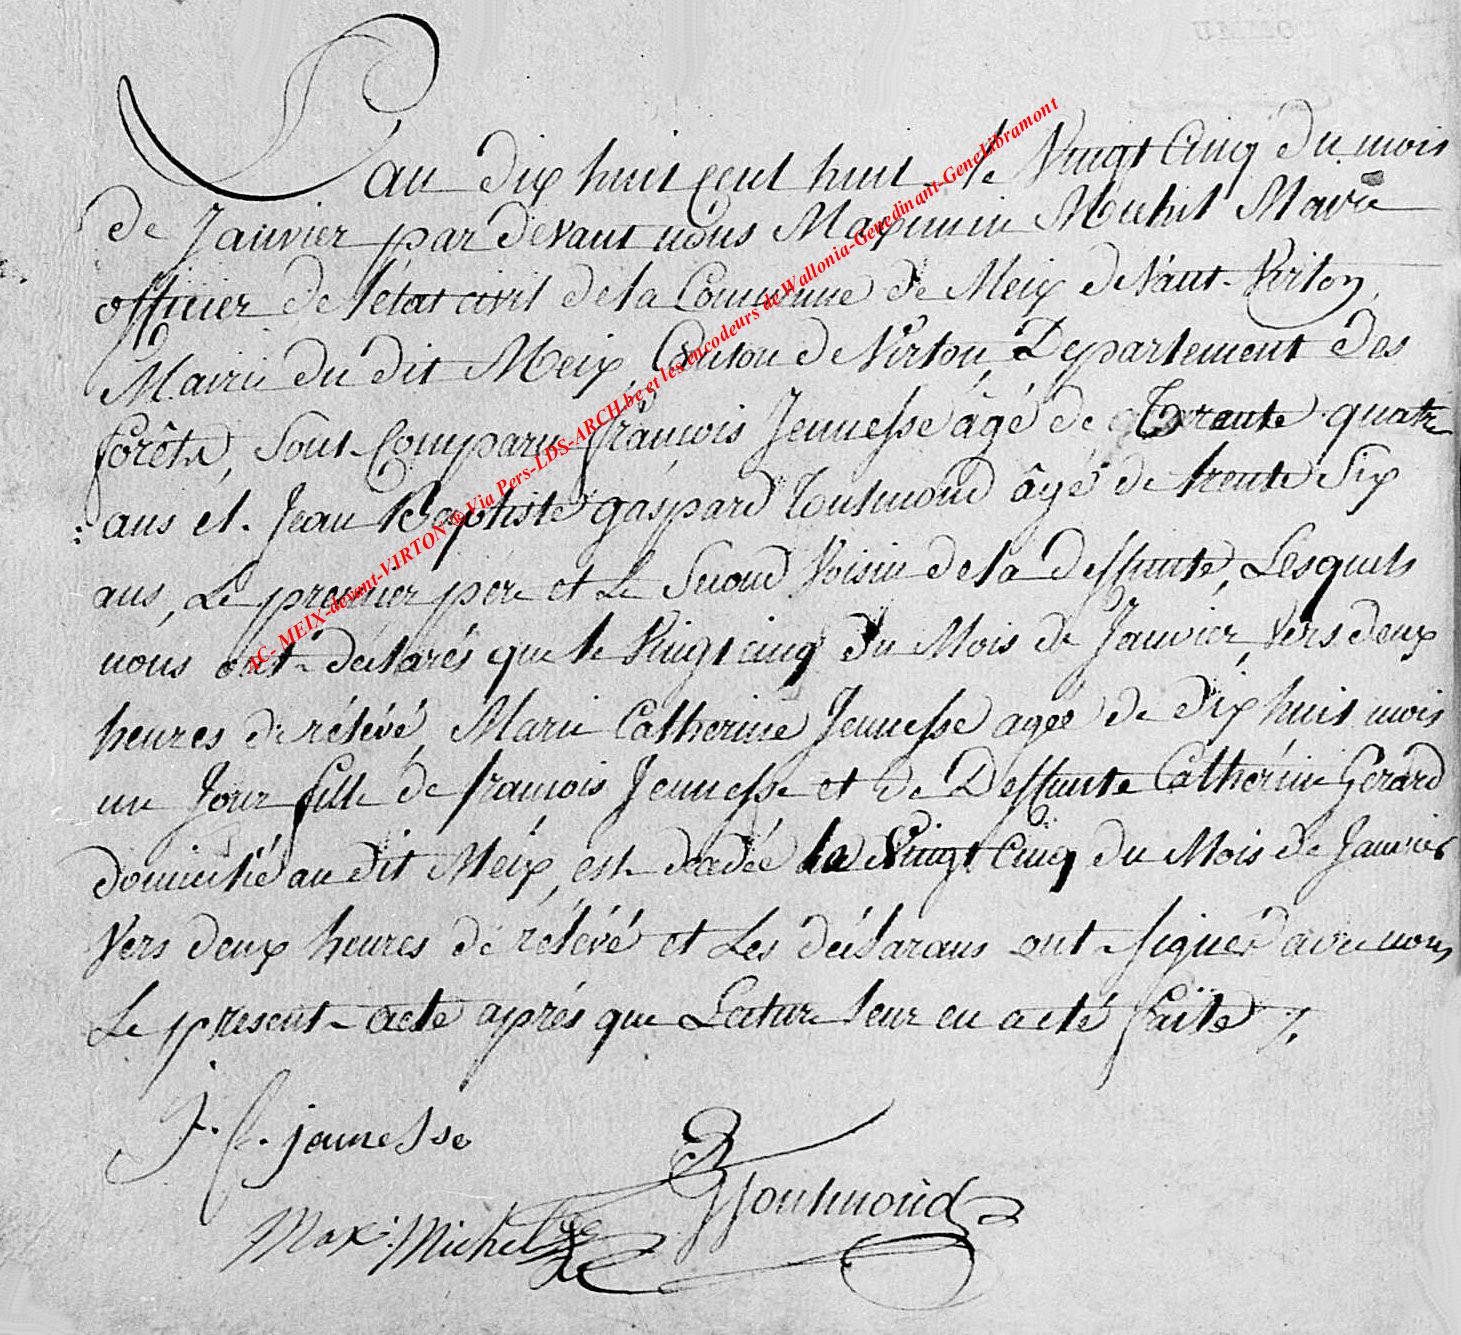 L'an dix huit cent huit le Vingt Cinq du mois
de Janvier par devant nous Maximin Michel Maire
officier de l'état civil de la Commune de Meix devant Virton,
Mairie du dit Meix Canton de Virton, Departement des
forêts, sont Comparu françois Jeunesse âgé de trante quatre
ans et Jean Baptiste gaspard Toulmond âgé de trente Six
ans, Le premier pére et Le Second Voisin de la deffunte, Lesquels
nous ont déclarés que le Vingt cinq du Mois de Janvier, Vers deux
heures de rélévé, Marie Catherine Jeunesse agée de dix huit mois
un Jour fille de françois Jeunesse et de Deffunte Cathérine Gerard
domicilié au dit Meix, est decedée le Vingt Cinq du Mois de Janvier
Vers deux heures de rélévé et Les déclarans ont signer avec nous
Le present acte aprés que Lecture leur en a eté faite /.
J. f. jeunesse
Toulmond
Max: Michel
IC- MEIX-devant-VIRTON ® Via Pers-LDS-ARCH.be et les encodeurs de Wallonia-Genedinant-GeneLibramont